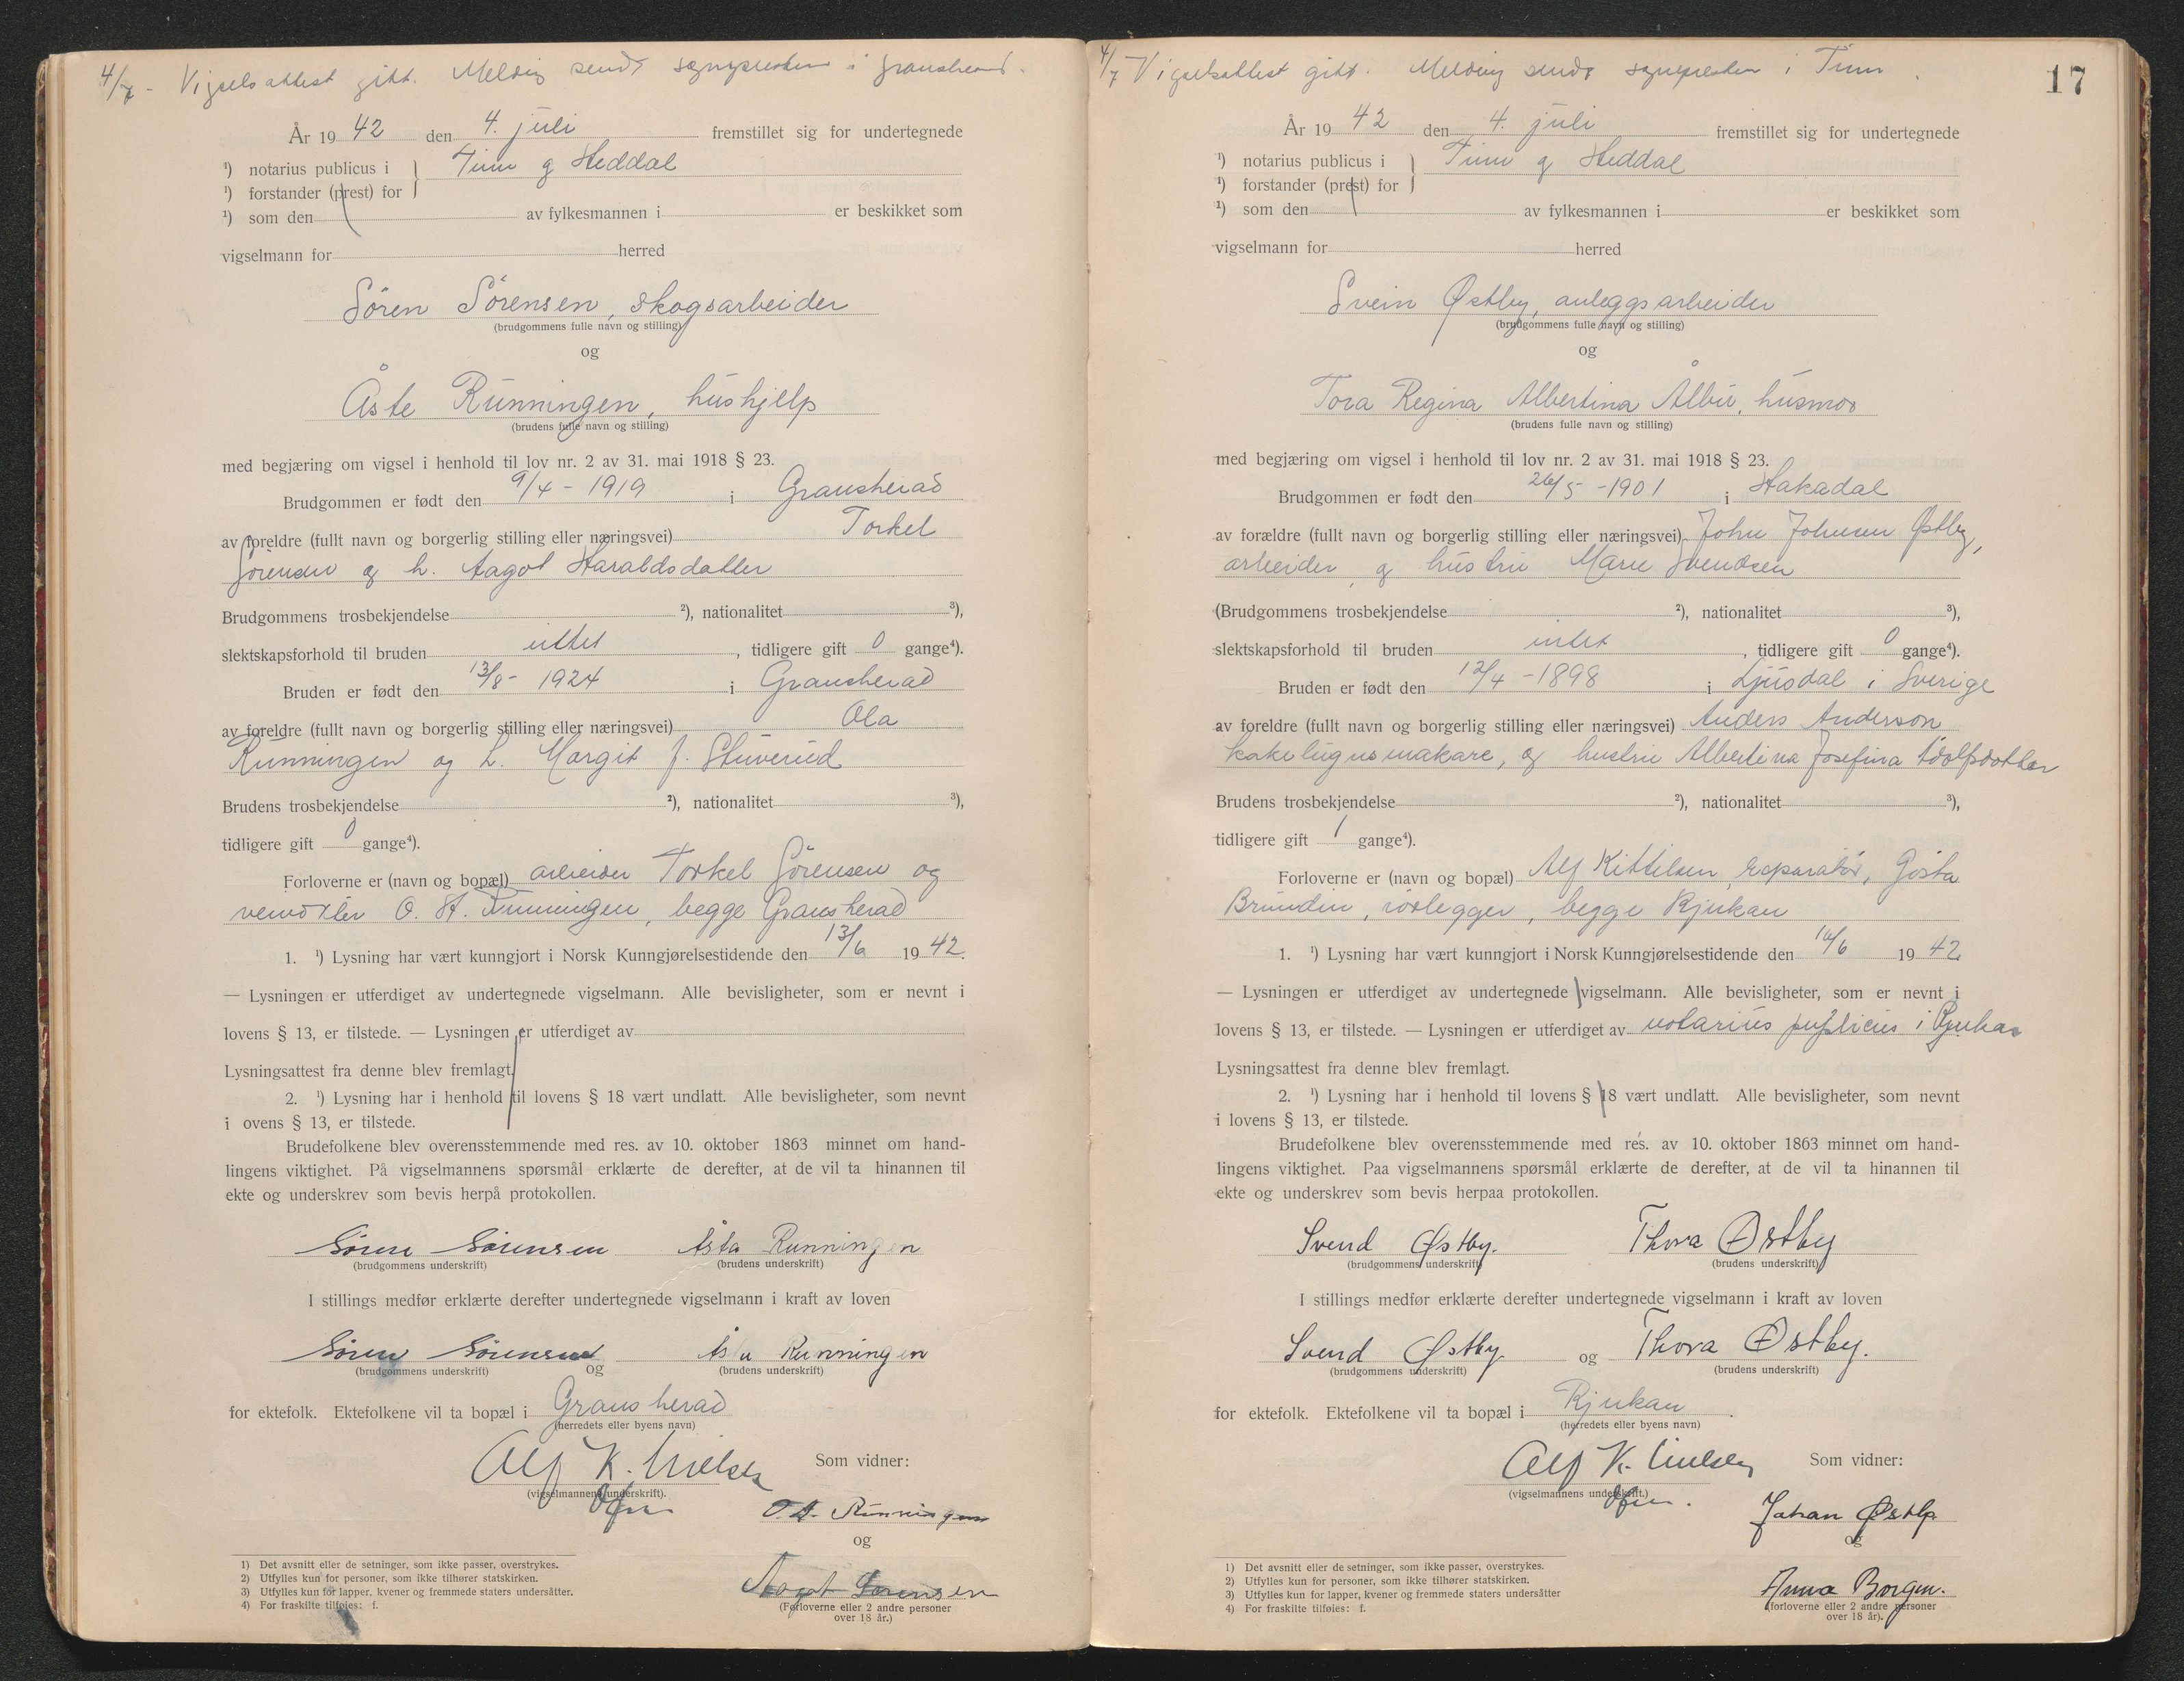 4/7 - Vigselsattest gitt. Melding sendt sognepresten i Gransherad.
År 19 42 den 4. juli fremstillet sig for undertegnede
¹) notarius publicus i } Tinn og Heddal
¹) forstander (prest) for
¹) som den av fylkesmannen i er beskikket som
vigselmann for herred
Sören Sörensen, skogsarbeider
(brudgommens fulle navn og stilling)
og
Åste Runningen, hushjelp
(brudens fulle navn og stilling)
med begjæring om vigsel i henhold til lov nr. 2 av 31. mai 1918 § 23.
Brudgommen er født den 9/4 - 1919 i Gransherad
av foreldre (fullt navn og borgerlig stilling eller næringsvei) Torkel
Sörensen og h. Aagot Haraldsdatter
Brudgommens trosbekjendelse ²), nationalitet ³),
slektskapsforhold til bruden intet, tidligere gift 0 gange⁴).
Bruden er født den 13/8 - 1924 i Gransherad
av foreldre (fullt navn og borgerlig stilling eller næringsvei) Ola
Runningen og h. Margit f. Stuverud
Brudens trosbekjendelse ²), nationalitet ³),
tidligere gift 0 gange⁴).
Forloverne er (navn og bopæl) arbeider Torkel Sörensen og
O. H. Runningen, begge Gransherad
1. ¹) Lysning har vært kunngjort i Norsk Kunngjørelsestidende den 13/6 19 42.
— Lysningen er utferdiget av undertegnede vigselmann. Alle bevisligheter, som er nevnt i
lovens § 13, er tilstede. — Lysningen er utferdiget av
Lysningsattest fra denne blev fremlagt.
2. ¹) Lysning har i henhold til lovens § 18 vært undlatt. Alle bevisligheter, som nevnt
i ovens § 13, er tilstede.
Brudefolkene blev overensstemmende med res. av 10. oktober 1863 minnet om hand-
lingens viktighet. På vigselmannens spørsmål erklærte de derefter, at de vil ta hinannen til
ekte og underskrev som bevis herpå protokollen.
Sören Sörensen Åsta Runningen
(brudgommens underskrift) (brudens underskrift)
I stillings medfør erklærte derefter undertegnede vigselmann i kraft av loven
Sören Sörensen og Åsta Runningen
(brudgommens underskrift) (brudens underskrift)
for ektefolk. Ektefolkene vil ta bopæl i Gransherad
(herredets eller byens navn)
Alf K. Nielsen Som vidner:
(vigselmannens underskrift).
O. H. Runningen
og
Aagot Sørensen
(Forloverne eller 2 andre personer
over 18 år.)
1) Det avsnitt eller de setninger, som ikke passer, overstrykes.
2) Utfylles kun for personer, som ikke tilhører statskirken.
3) Utfylles kun for lapper, kvener og fremmede staters undersåtter.
4) For fraskilte tilføies: f.
17
4/7 - Vigselsattest gitt. Melding sendt sognepresten i Tinn.
År 19 42 den 4. juli fremstillet sig for undertegnede
¹) notarius publicus i } Tinn og Heddal
¹) forstander (prest) for
¹) som den av fylkesmannen i er beskikket som
vigselmann for herred
Svein Østby, anleggsarbeider
(brudgommens fulle navn og stilling)
og
Tora Regina Albertina Ålbu, husmor
(brudens fulle navn og stilling)
med begjæring om vigsel i henhold til lov nr. 2 av 31. mai 1918 § 23.
Brudgommen er født den 26/5 - 1901 i Hakadal
av forældre (fullt navn og borgerlig stilling eller næringsvei) John Johnsen Østby,
arbeider, og hustru Marie Svendsen
(Brudgommens trosbekjendelse ²), nationalitet ³),
slektskapsforhold til bruden intet, tidligere gift 0 gange⁴).
Bruden er født den 12/4 - 1898 i Ljusdal i Sverige
av foreldre (fullt navn og borgerlig stilling eller næringsvei) Anders Anderson
kakelugnsmakare, og hustru Albertina Josefina Adolfsdotter
Brudens trosbekjendelse ²), nationalitet ³),
tidligere gift 1 gange⁴).
Forloverne er (navn og bopæl) Alf Kittilsen, reparatör, Gösta
Brundin, rörlegger, begge Rjukan
1. ¹) Lysning har vært kunngjort i Norsk Kunngjørelsestidende den 16/6 19 42
— Lysningen er utferdiget av undertegnede vigselmann. Alle bevisligheter, som er nevnt i
lovens § 13, er tilstede. — Lysningen er utferdiget av notarius publicus i Rjukan
Lysningsattest fra denne blev fremlagt.
2. ¹) Lysning har i henhold til lovens § 18 vært undlatt. Alle bevisligheter, som nevnt
i lovens § 13, er tilstede.
Brudefolkene blev overensstemmende med res. av 10. oktober 1863 minnet om hand-
lingens viktighet. Paa vigselmannens spørsmål erklærte de derefter, at de vil ta hinannen til
ekte og underskrev som bevis herpaa protokollen.
Svend Østby. Thora Østby
(brudgommens underskrift) (brudens underskrift)
I stillings medfør erklærte derefter undertegnede vigselmann i kraft av loven
Svend Østby og Thora Østby.
(brudgommens underskrift) (brudens underskrift)
for ektefolk. Ektefolkene vil ta bopæl i Rjukan.
(herredets eller byens navn)
Alf K. Nielsen Som vidner:
(vigselmannens underskrift.)
Johan Østby
og
Anna Borgen.
(forloverne eller 2 andre personer
over 18 år).
1) Det avsnitt eller de setninger, som ikke passer, overstrykes.
2) Utfylles kun for personer, som ikke tilhører statskirken.
3) Utfylles kun for lapper, kvener og fremmede staters undersåtter
4) For fraskilte tilføies: f.